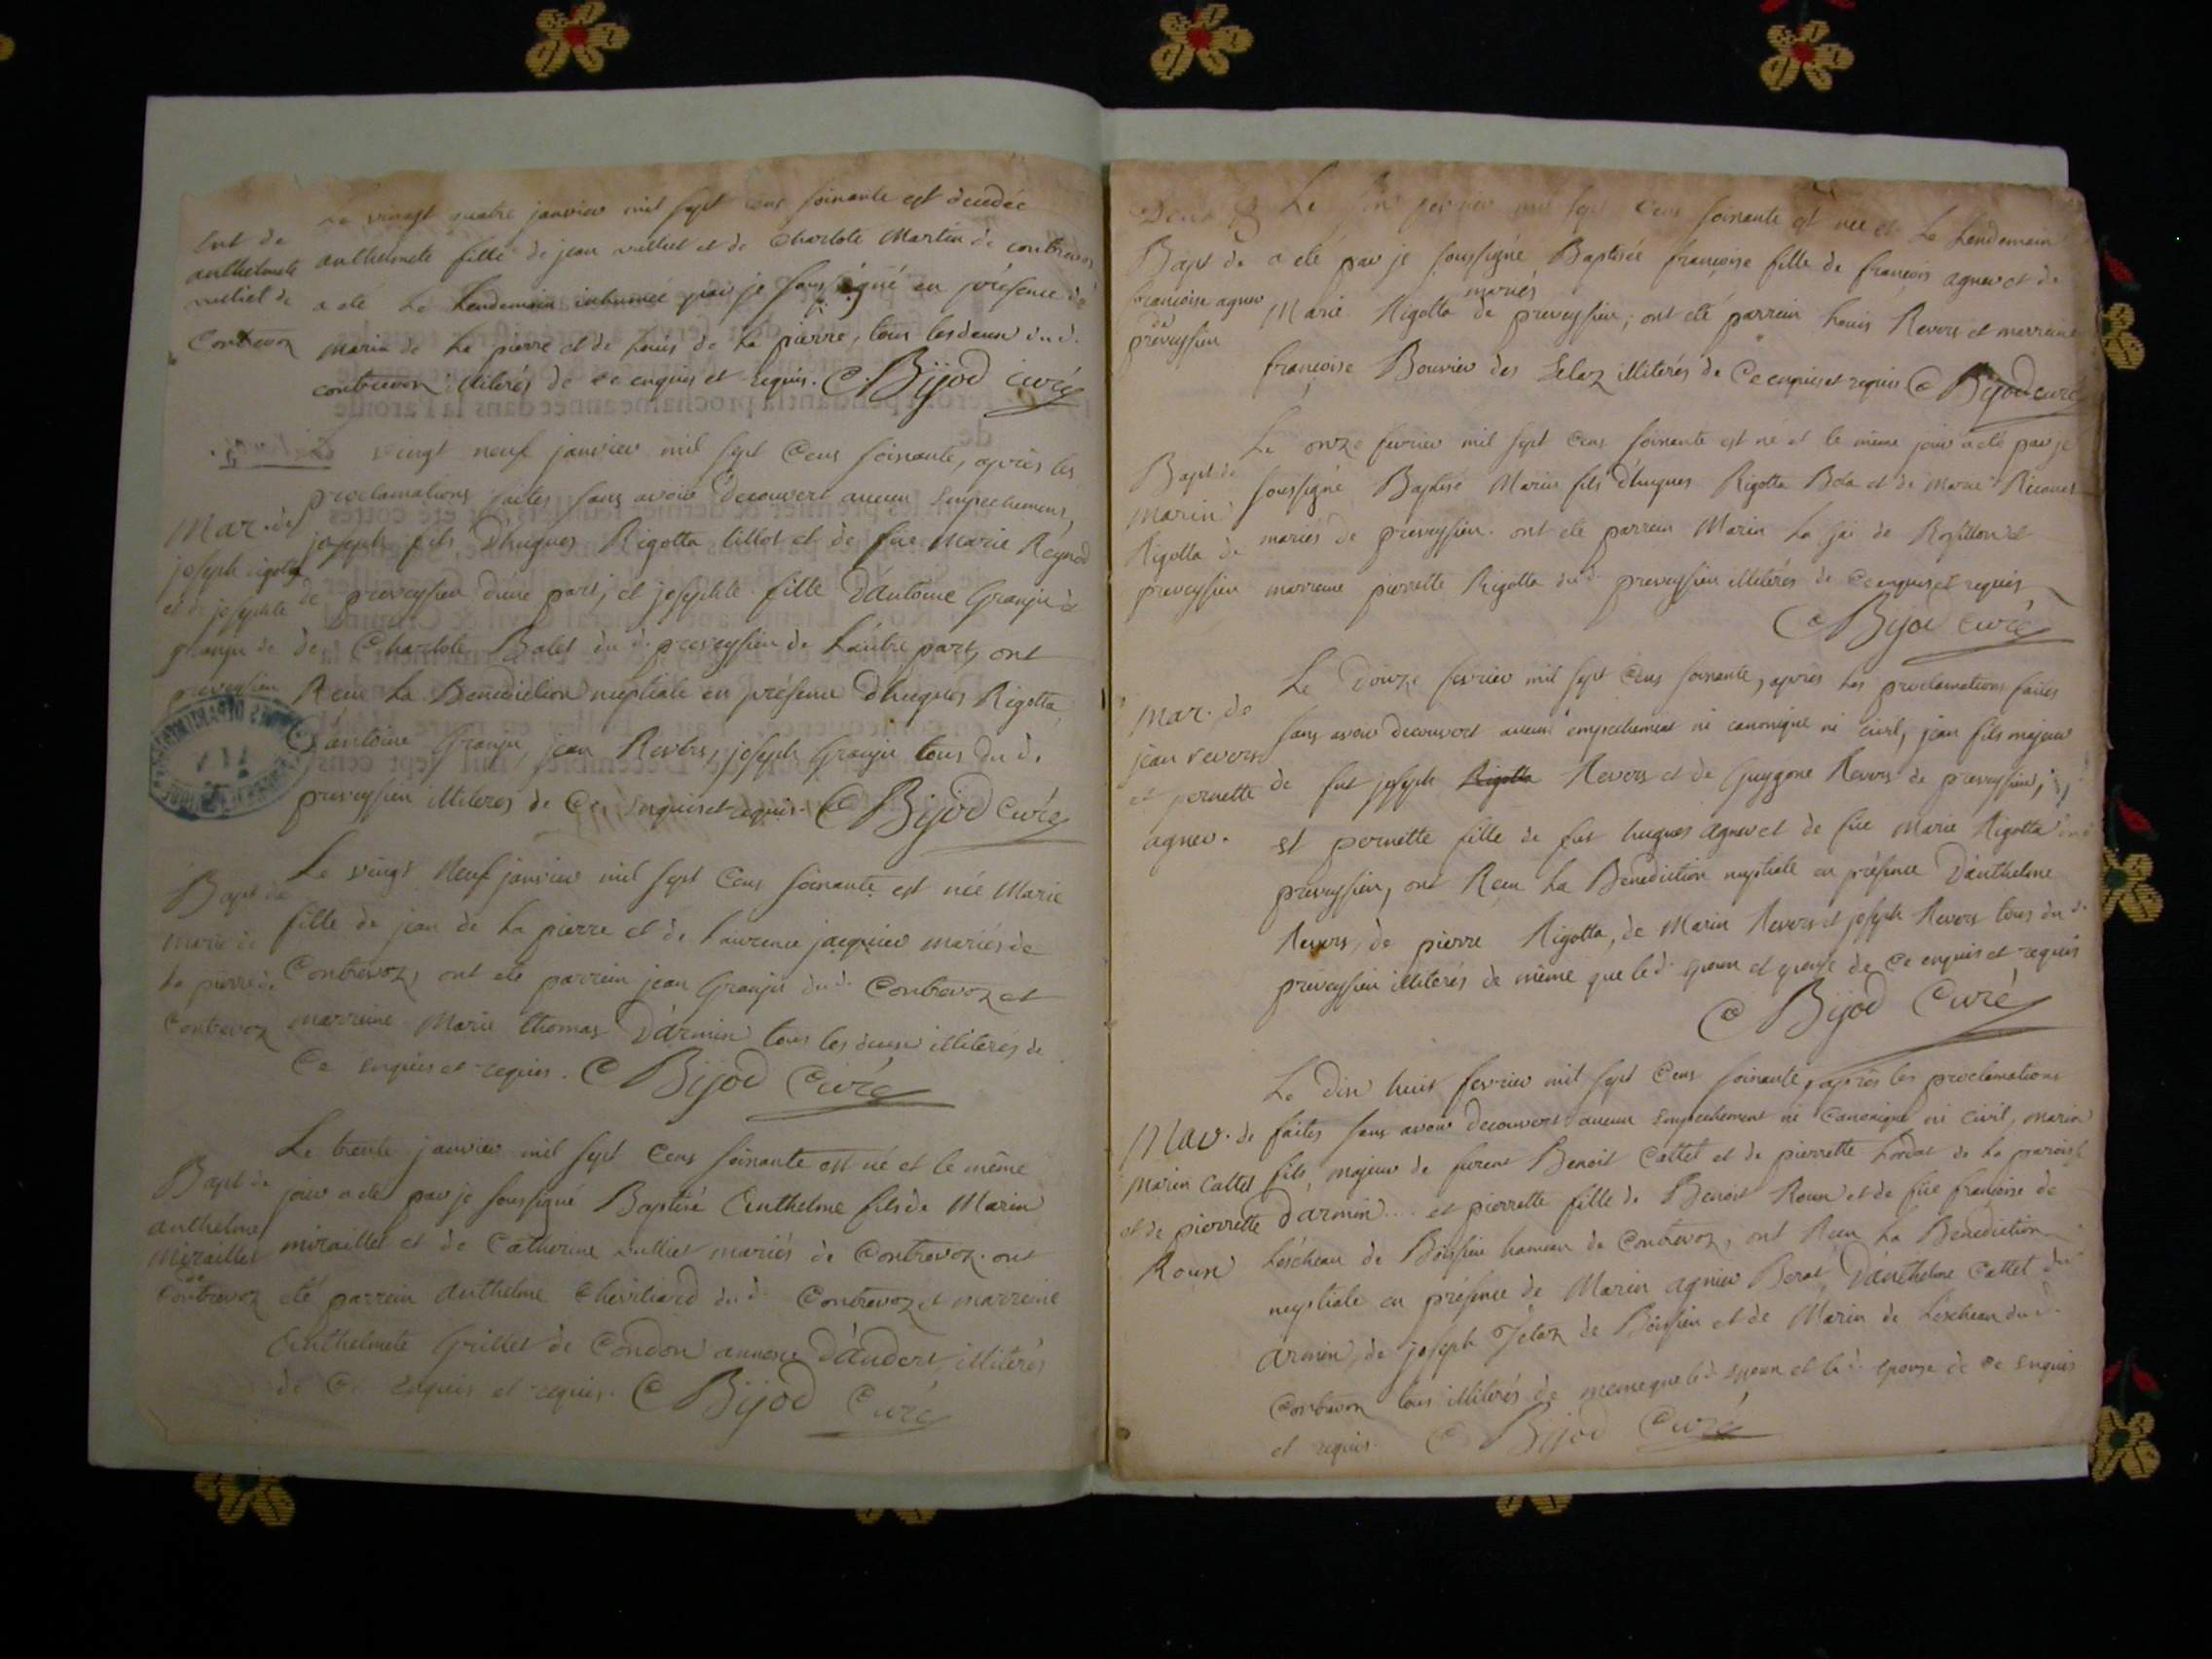 vingt quatre janvier mil sept cens soixante est decedée
Ent de
anthelmete anthelmete fille de jean milliet et de Charlote Martin de contrevoz
milliet de a eté Le Lendemain inhumée par je soussigné en présence de
Contrevoz marin de La pierre et de Louis de La pierre, tous les deux du d.
contrevoz illiterés de ce enquis et requis. C Bijod curé
Le vingt neuf janvier mil sept Cens soixante, après les
proclamations faites sans avoir decouvert aucun Empechement,
Mar. de joseph fils D'hugues Rigotta tillot et de füe Marie Reynod
joseph rigotta de preveyssieu d'une part, et josephte fille D'antoine Granju et
et de josephte de Charlote Balet du d. preveyssieu de L'autre part, ont
granju de
preveyssieu Reçu La Benediction nuptiale en présence D'hugues Rigotta,
D'antoine Granju, jean Revers, joseph Granju tous du d.
preveyssieu illiteres de Ce Enquis et requis. C Bijod Curé
Le vingt Neuf janvier mil sept Cens soixante est née Marie
Bapt de
marie de fille de jean de La pierre et de Laurence jacquier mariés de
La pierre de Contrevoz, ont eté parrein jean Granju du d. Contrevoz et
Contrevoz marreine Marie thomas D'armin tous les deux illiterés de
Ce enquis et requis. C Bijod Curé
Le trente janvier mil sept Cens soixante est né et le même
Bapt de jour a eté par je soussigné Baptisé Anthelme fils de Marin
anthelme
miraillet miraillet et de Catherine milliet mariés de Contrevoz. ont
de Contrevoz eté parrein Anthelme Chevrliard du d. Contrevoz et marreine
Anthelmete Grillet de Condon annexe D'andert, illiterés
de Ce enquis et requis. C Bijod Curé
Le fevrier mil sept Cens soixante est née et Le Lendemain
Bapt de a eté par je soussigné Baptisée françoise fille de françois agner et de
françoise agner mariés
de Marie Rigotta de preveyssieu; ont eté parrein Louis Revers et marreine
preveyssieu
françoise Bouvier des illiterés de Ce enquis et requis C Bijod curé
Le onze fevrier mil sept Cens soixante est né et le même jour a eté par je
Bapt de soussigné Baptisé Marin fils D'hugues Rigotta Bola et de Marie
marin
Rigotta de mariés de preveyssieu. ont eté parrein Marin La de Rossillon et
preveyssieu marreine pierrette Rigotta du d. preveyssieu illiterés de Ce enquis et requis
C Bijod curé
Le Douze fevrier mil sept Cens soixante, après Les proclamations faites
mar. de sans avoir decouvert aucun empechement ni canonique ni civil, jean fils majeur
jean revers
et pernette de fut joseph Rigotta Revers et de Guygone Revers de preveyssieu,
agner. et pernette fille de fut hugues agner et de füe Marie Rigotta du d.
preveyssieu, ont Reçu La Benediction nuptiale en présence D'anthelme
Revers, de pierre Rigotta, de Marin Revers et joseph Revers tous du d.
preveyssieu illiterés de même que le d. epoux et epouse de Ce enquis et requis
C Bijod Curé
Le Dix huit fevrier mil sept Cens soixante, après les proclamations
Mar. de faites sans avoir decouvert aucun Empechement ni Canonique ni civil, marin
marin Cattet fils majeur de furent Benoit Cattet et de pierrette Lordat de La paroisse
et de pierrette D'armin.... et pierrette fille de Benoit Roux et de füe françoise de
Roux Lescheau de Boissieu hameau de Contrevoz, ont Reçu La Benediction
nuptiale en présence de Marin agnier Berat D'anthelme Cattet du
armin, de joseph de Boissieu et de Marin de Lescheau du d.
Contrevoz tous illiterés de meme que le d. Epoux et la d. epouse de Ce Enquis
et requis. C Bijod Curé